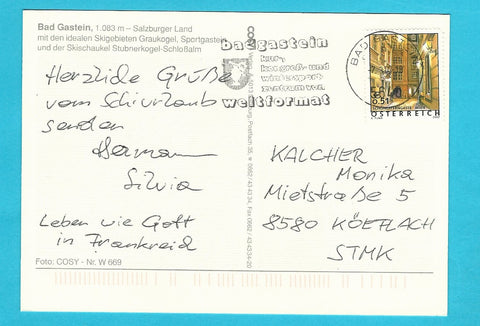 Bad Gastein, 1.083 m – Salzburger Land
mit den idealen Skigebieten Graukogel, Sportgastein
und der Skischaukel Stubnerkogel-Schloßalm
Herzliche Grüße
vom Schiurlaub
senden
Hermann
Silvia
Leben wie Gott
in Frankreich
Foto: COSY - Nr. W 669
badgastein
kur-,
kongreß- und
wintersport-
zentrum von
weltformat
BAD
0.51
ÖSTERREICH
Postfach 35,
0662/43-4-34, Fax 0662 / 43-4334-20
KALCHER
Monika
Mietstraße 5
8580 KÖFLACH
STMK